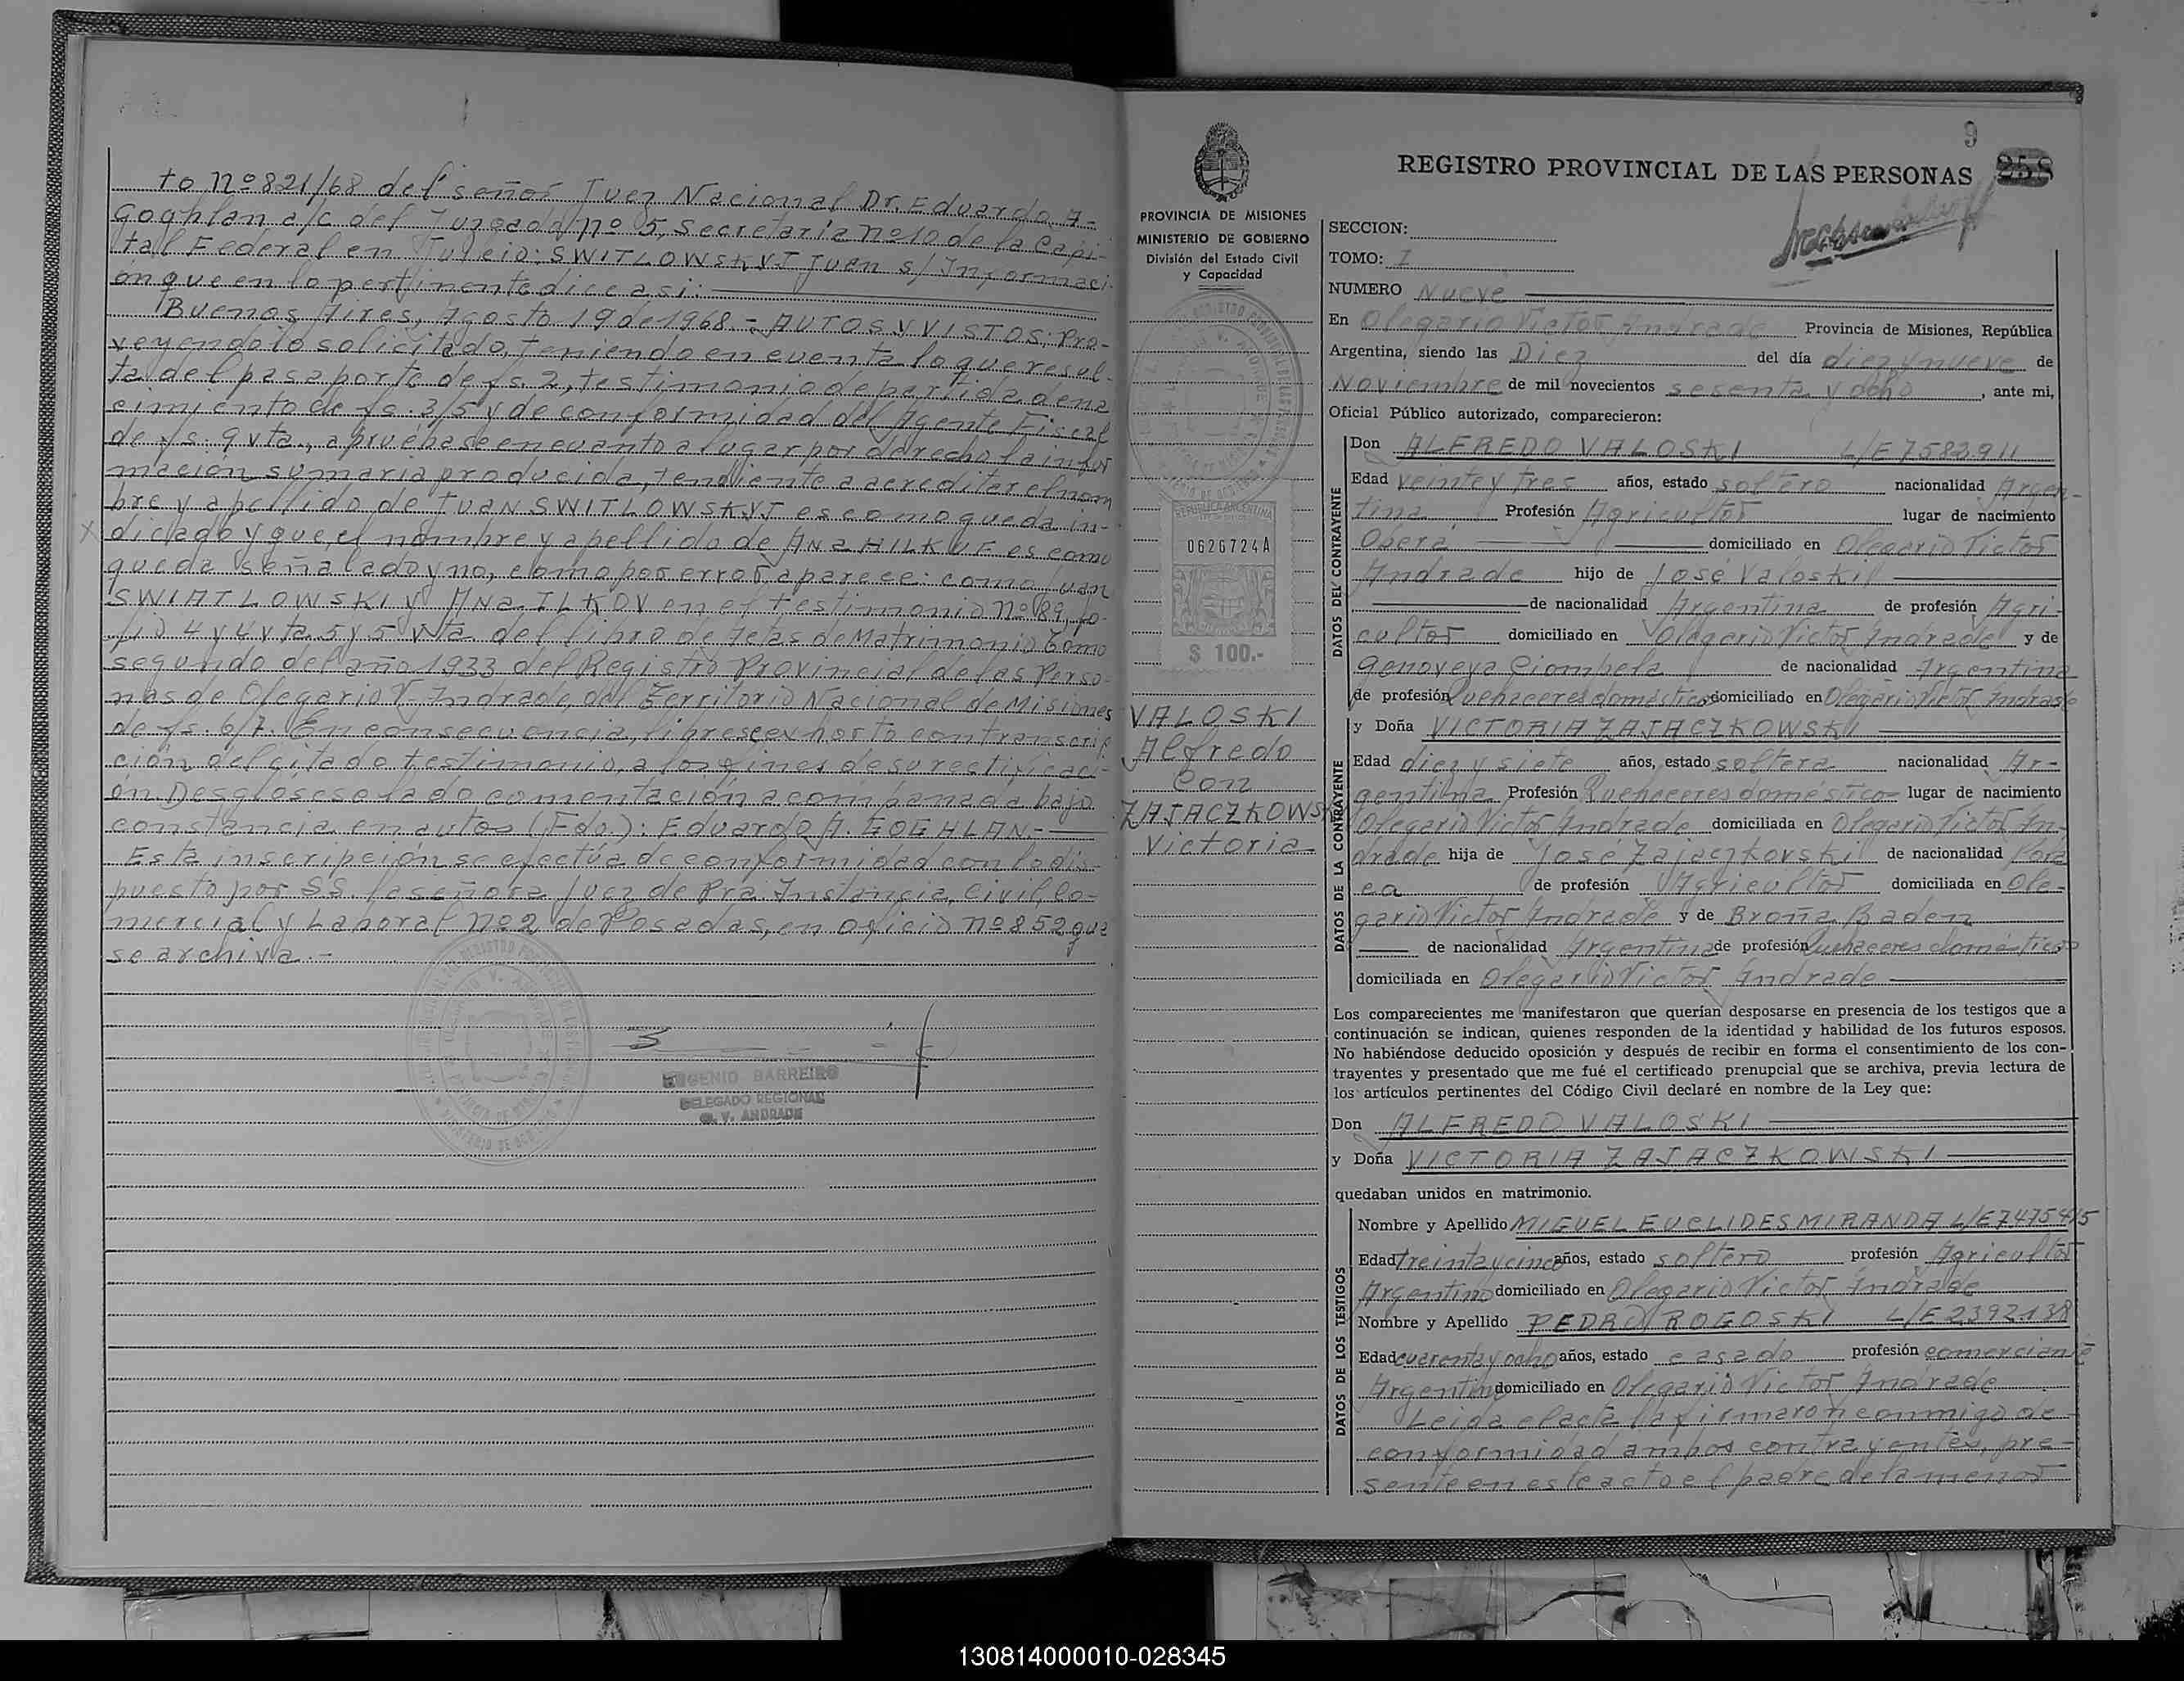 to nº 821/68 del señor Juez Nacional Dr. Eduardo A-
Goghlan a/c del Juzgado nº 5, Secretaría nº 10 de la Capi-
tal Federal en Juicio: SWITLOWSKYJ Juan s/ Informaci-
ón que en lo pertinente dice asi:
Buenos Aires, Agosto 19 de 1968.- AUTOS Y VISTOS; Pro-
veyendo lo solicitado, teniendo en cuenta lo que resul-
ta del pasaporte de fs. 2, testimonio de partida de na
cimiento de fs. 3/5 y de conformidad del Agente Fiscal
de fs. 9 vta., apruébase en cuanto a lugar por derecho la infor
mación sumaria producida, tendiente a acreditar el nom
bre y apellido de JUAN SWITLOWSKYJ es como queda in-
X dicado y que, el nombre y apellido de ANA HILKUF es como
queda señalado y no, como por error, aparece: como Juan
SWIATLOWSKI y ANA ILKOV en el testimonio nº 89, fo-
lio 4 y 4 vta. 5 y 5 vta del libro de Actas de Matrimonio Tomo
segundo del año 1933 del Registro Provincial de las Perso-
nas de Olegario V. Andrade, del Territorio Nacional de Misiones
de fs. 6/7. En consecuencia, líbrese exhorto con transcrip
ción del citado testimonio, a los fines de su rectificaci-
ón Desglosese la documentación acompañada bajo
constancia en autos (Fdo.): Eduardo A. GOGHLAN.-
Esta inscripción se efectúa de conformidad con lo dis-
puesto por SS. la señora Juez de Pra. Instancia, Civil, Co-
mercial y Laboral nº 2 de Posadas, en oficio nº 852 que
se archiva.-
EUGENIO BARREIRO
DELEGADO REGIONAL
O. V. ANDRADE
9
REGISTRO PROVINCIAL DE LAS PERSONAS 258
PROVINCIA DE MISIONES
MINISTERIO DE GOBIERNO
División del Estado Civil
y Capacidad
REPUBLICA ARGENTINA
0626724A
$ 100.-
VALOSKI
Alfredo
Con
ZAJACZKOWSKI
Victoria
SECCION:
TOMO: I
NUMERO Nueve
En Olegario Victor Andrade Provincia de Misiones, República
Argentina, siendo las Diez del día diez y nueve de
Noviembre de mil novecientos sesenta y ocho, ante mi,
Oficial Público autorizado, comparecieron:
DATOS DEL CONTRAYENTE
Don ALFREDO VALOSKI L/E 7583911
Edad veinte y tres años, estado soltero nacionalidad Argen-
tina Profesión Agricultor lugar de nacimiento
Oberá domiciliado en Olegario Victor
Andrade hijo de José Valoski
de nacionalidad Argentina de profesión Agri-
cultor domiciliado en Olegario Victor Andrade y de
Genoveva Ciombela de nacionalidad Argentina
de profesión Quehaceres doméstico domiciliado en Olegario Victor Andrade
DATOS DE LA CONTRAYENTE
y Doña VICTORIA ZAJACZKOWSKI
Edad diez y siete años, estado soltera nacionalidad Ar-
gentina Profesión Quehaceres doméstico lugar de nacimiento
Olegario Victor Andrade domiciliada en Olegario Victor An-
drade hija de José Zajaczkovski de nacionalidad Pola
ca de profesión Agricultor domiciliada en Ole-
gario Victor Andrade y de Broña Baden
de nacionalidad Argentina de profesión Quehaceres doméstico
domiciliada en Olegario Victor Andrade
Los comparecientes me manifestaron que querían desposarse en presencia de los testigos que a
continuación se indican, quienes responden de la identidad y habilidad de los futuros esposos.
No habiéndose deducido oposición y después de recibir en forma el consentimiento de los con-
trayentes y presentado que me fué el certificado prenupcial que se archiva, previa lectura de
los artículos pertinentes del Código Civil declaré en nombre de la Ley que:
Don ALFREDO VALOSKI
y Doña VICTORIA ZAJACZKOWSKI
quedaban unidos en matrimonio.
DATOS DE LOS TESTIGOS
Nombre y Apellido MIGUEL EUCLIDES MIRANDA L/E 7475415
Edad treinta y cinco años, estado soltero profesión Agricultor
Argentino domiciliado en Olegario Victor Andrade
Nombre y Apellido PEDRO ROGOSKI L/E 2392138
Edad cuarenta y ocho años, estado casado profesión comerciante
Argentino domiciliado en Olegario Victor Andrade
Leida el acta la firmaron conmigo de
conformidad ambos contrayentes, pre-
sente en este acto el padre de la menor
130814000010-028345